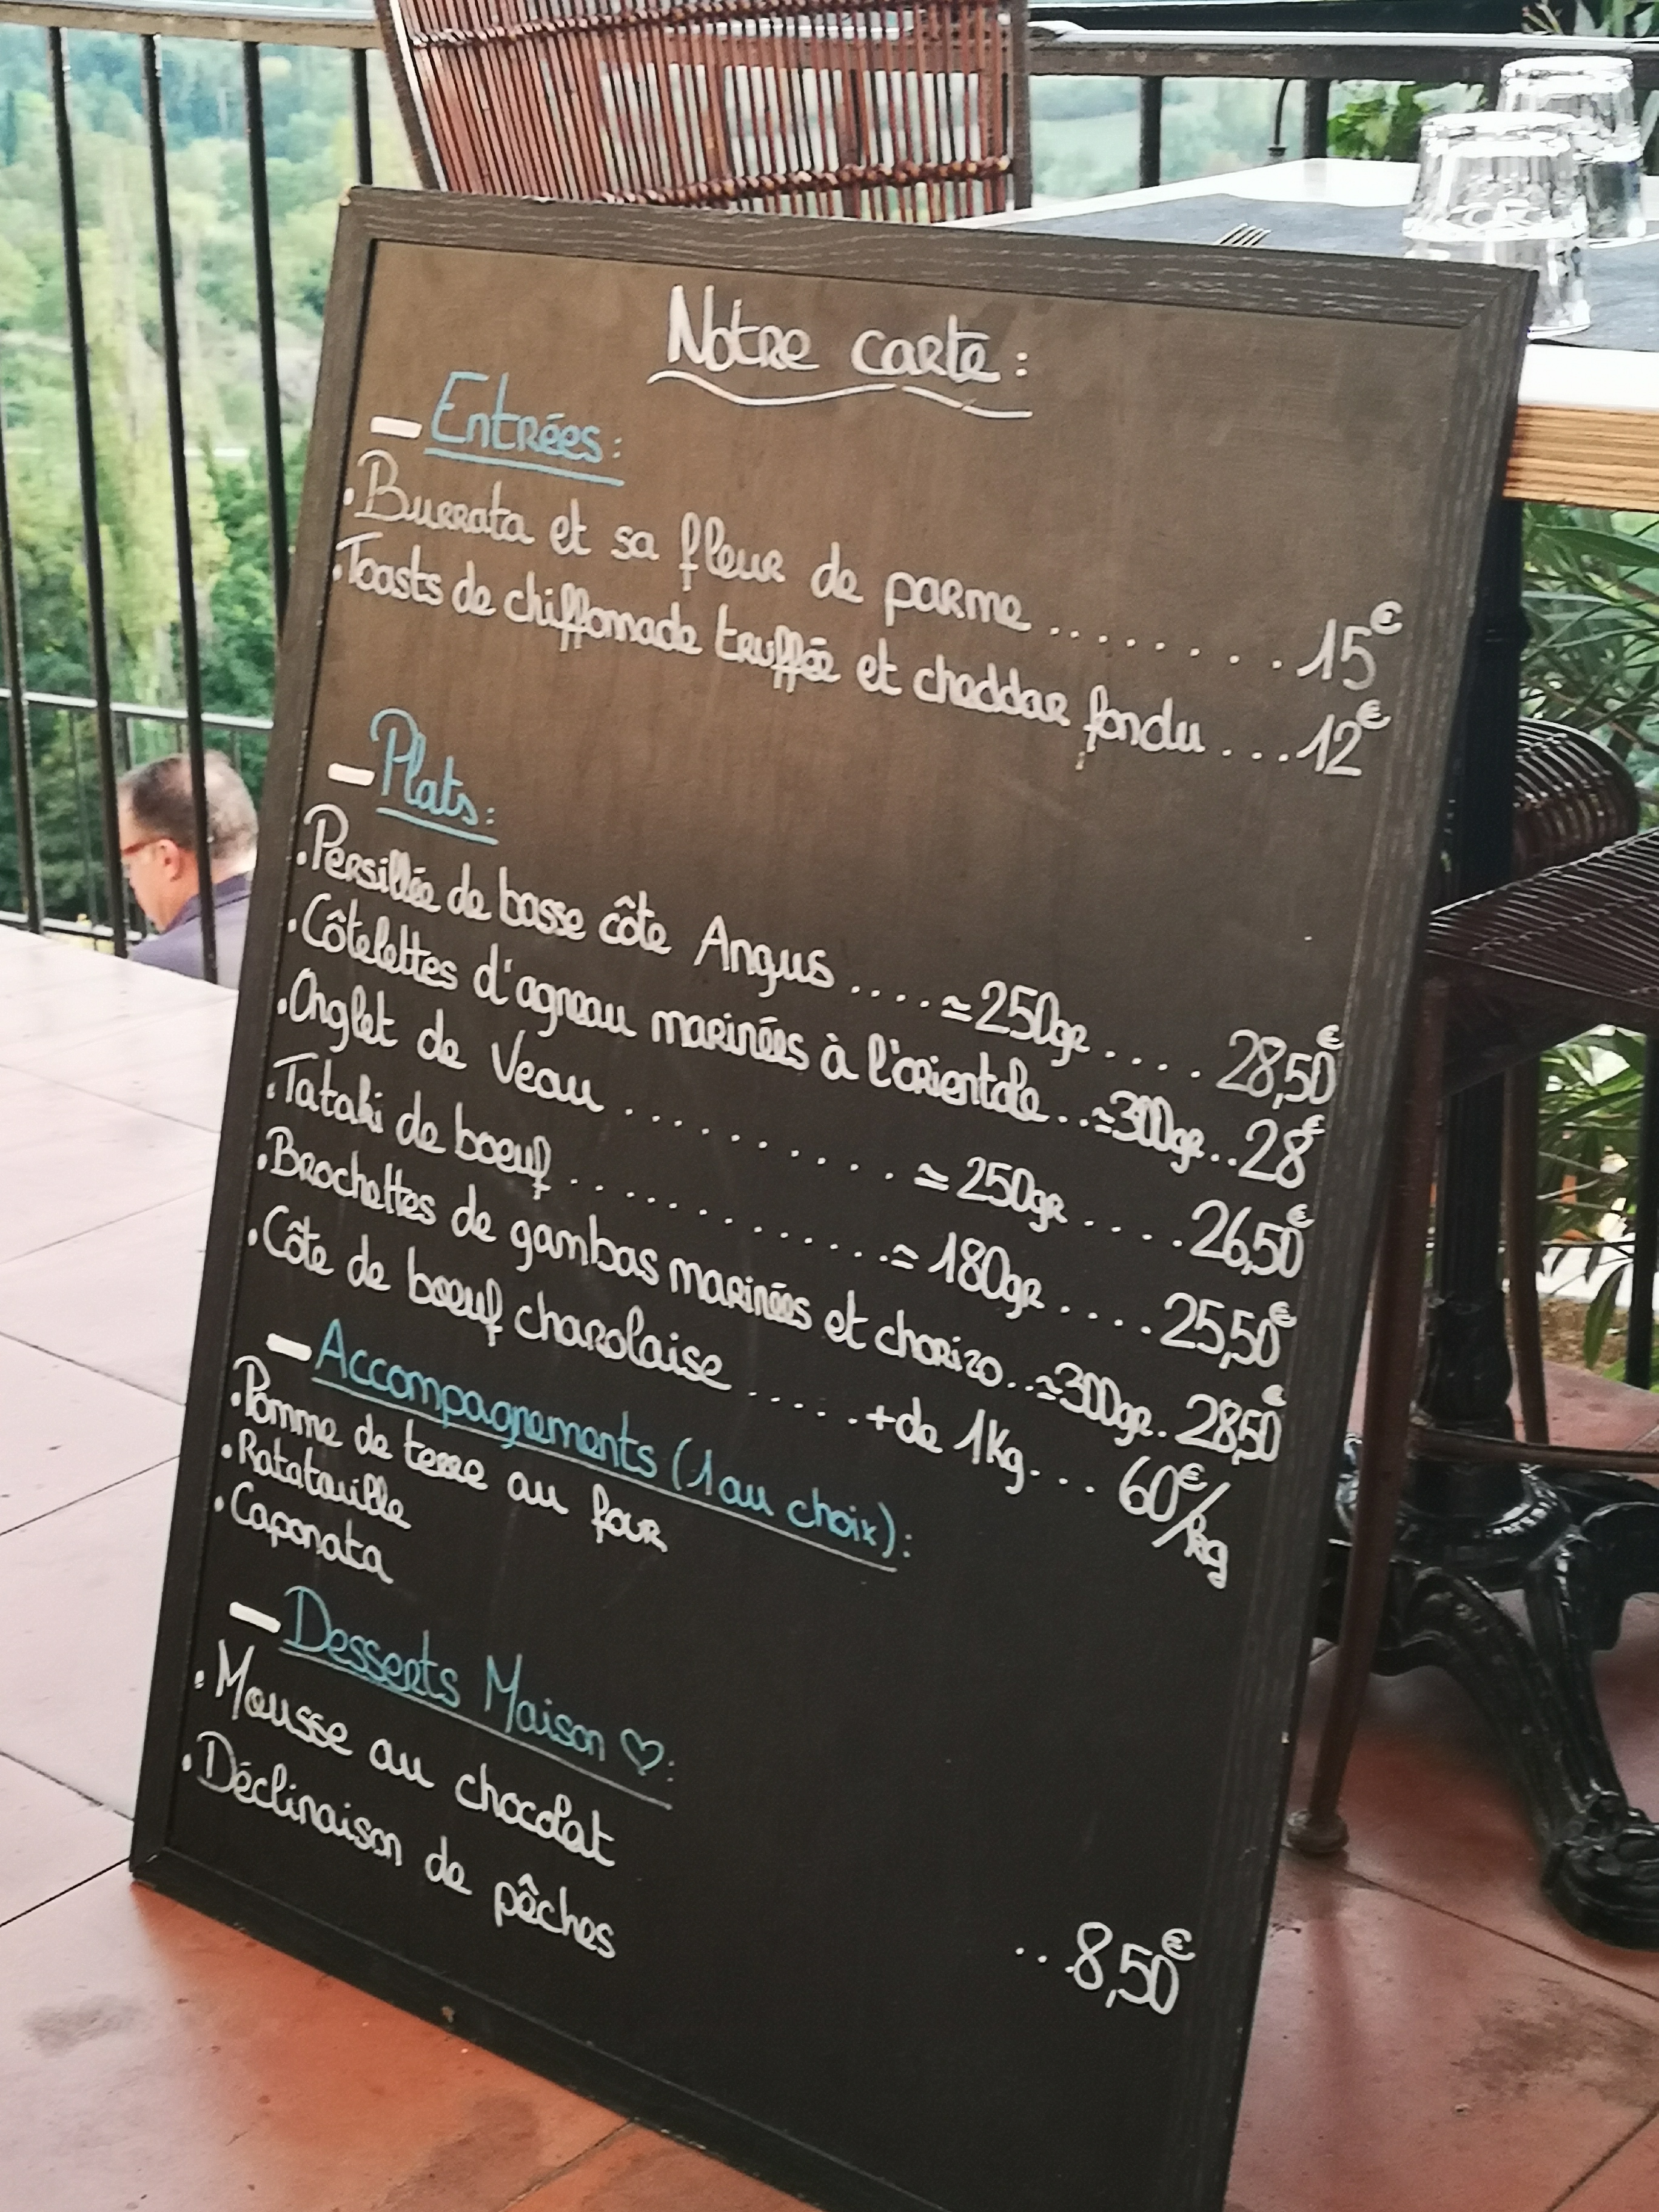 Notre carte :
— Entrées :
. Burrata et sa fleur de parme ........ 15€
. Toasts de chiffonnade truffée et cheddar fondu ... 12€
— Plats :
. Persillée de basse côte Angus .... ≃ 250gr .... 28,50€
. Côtelettes d'agneau marinées à l'orientale .. ≃ 300gr .. 28€
. Onglet de Veau .......... ≃ 250gr .... 26,50€
. Tataki de boeuf ............. ≃ 180gr .... 25,50€
. Brochettes de gambas marinées et chorizo .. ≃ 300gr . 28,50€
. Côte de boeuf charolaise ..... + de 1Kg ... 60€/kg
— Accompagnements (1 au choix) :
. Pomme de terre au four
. Ratatouille
. Caponata
— Desserts Maison ♡ :
. Mousse au chocolat
. Déclinaison de pêches .. 8,50€